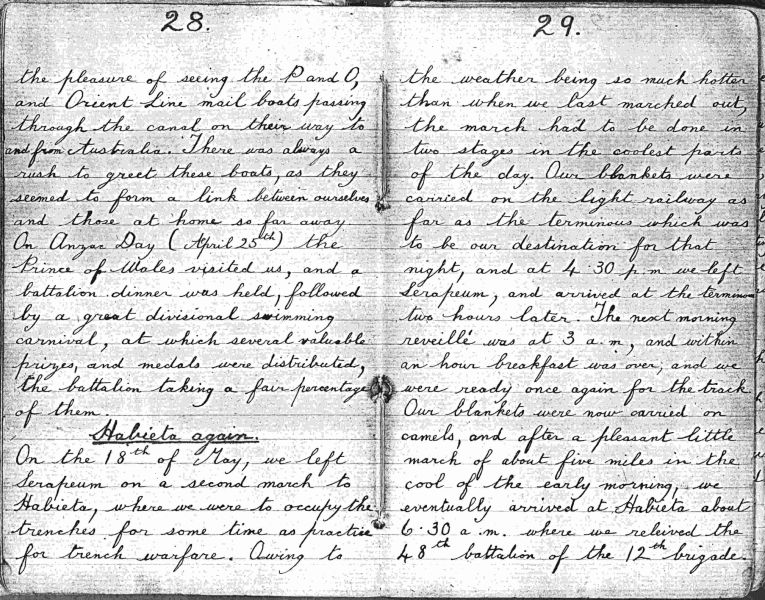 28.
the pleasure of seeing the P and O,
and Orient Line mail boats passing
through the canal on their way to
and from Australia. There was always a
rush to greet these boats, as they
seemed to form a link between ourselves
and those at home so far away
On Anzac Day (April 25th) the
Prince of Wales visited us, and a
battalion dinner was held, followed
by a great divisional swimming
carnival, at which several valuable
prizes, and medals were distributed,
the battalion taking a fair percentage
of them.
Habieta again.
On the 18th of May, we left
Serapeum on a second march to
Habieta, where we were to occupy the
trenches for some time as practice
for trench warfare. Owing to
29.
the weather being so much hotter
than when we last marched out,
the march had to be done in
two stages in the coolest parts
of the day. Our blankets were
carried on the light railway as
far as the terminous which was
to be our destination for that
night, and at 4.30 p.m we left
Serapeum, and arrived at the terminous
two hours later. The next morning
reveillé was at 3 a.m, and within
an hour breakfast was over, and we
were ready once again for the track
Our blankets were now carried on
camels, and after a pleasant little
march of about five miles in the
cool of the early morning, we
eventually arrived at Habieta about
6.30 a.m. where we releived the
48th battalion of the 12th brigade.